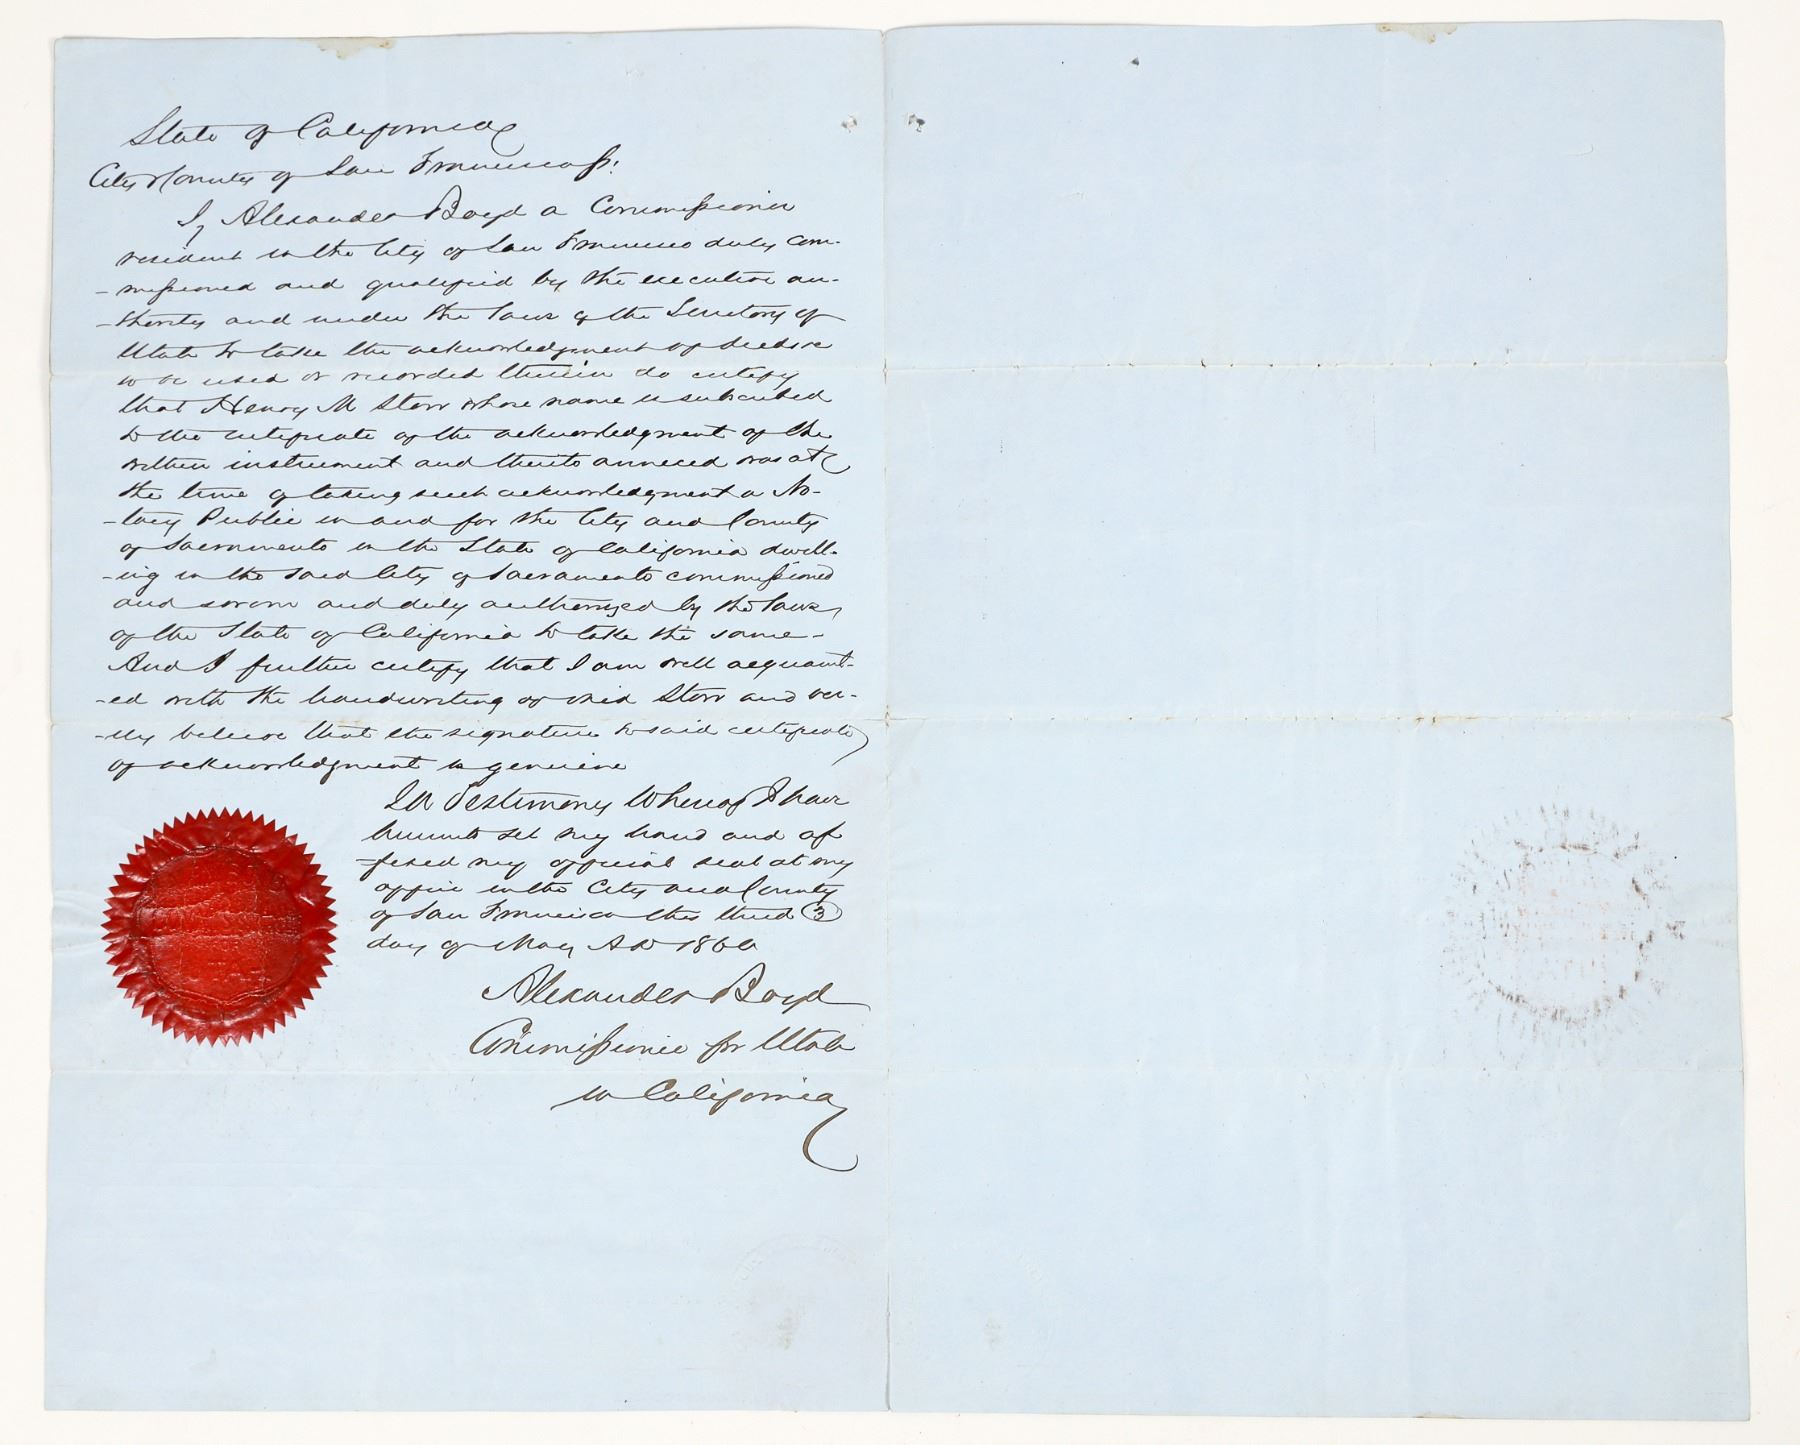 State of California
City & County of San Francisco ss:
I, Alexander Boyd a Commissioner
resident in the City of San Francisco duly com-
-missioned and qualified by the executive au-
-thority and under the laws of the Territory of
Utah to take the acknowledgment of deeds &c
to be used or recorded therein do certify
that Henry M Starr whose name is subscribed
to the certificate of the acknowledgment of the
within instrument and thereto annexed was at
the time of taking such acknowledgment a No-
-tary Public in and for the City and County
of Sacramento in the State of California dwell-
-ing in the said City of Sacramento commissioned
and sworn and duly authorized by the laws
of the State of California to take the same-
And I further certify that I am well acquaint-
-ed with the handwriting of said Starr and ver-
-ily believe that the signature to said certificate
of acknowledgment is genuine
In Testimony Whereof I have
hereunto set my hand and af
=fixed my official seal at my
office in the City and County
of San Francisco this third (3)
day of May A D 1860
Alexander Boyd
Commissioner for Utah
in California